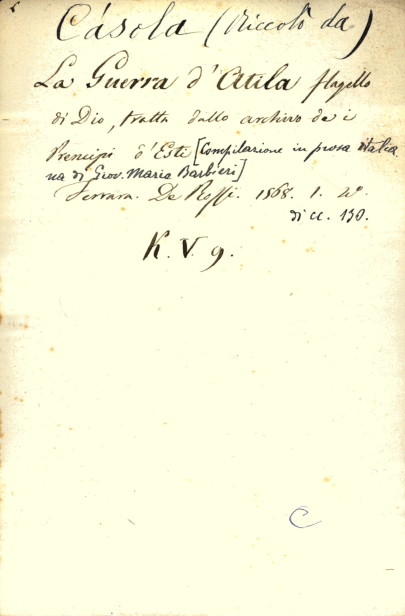 Càsola (Niccolò da)
La Guerra d'Attila flagello
di Dio, tratta dallo archivo de i
Prencipi d'Este [Compilazione in prosa italia
na di Giov. Maria Barbieri]
Ferrara. De Rossi. 1568. 1. 4°
di cc. 130.
K. V. 9.
C